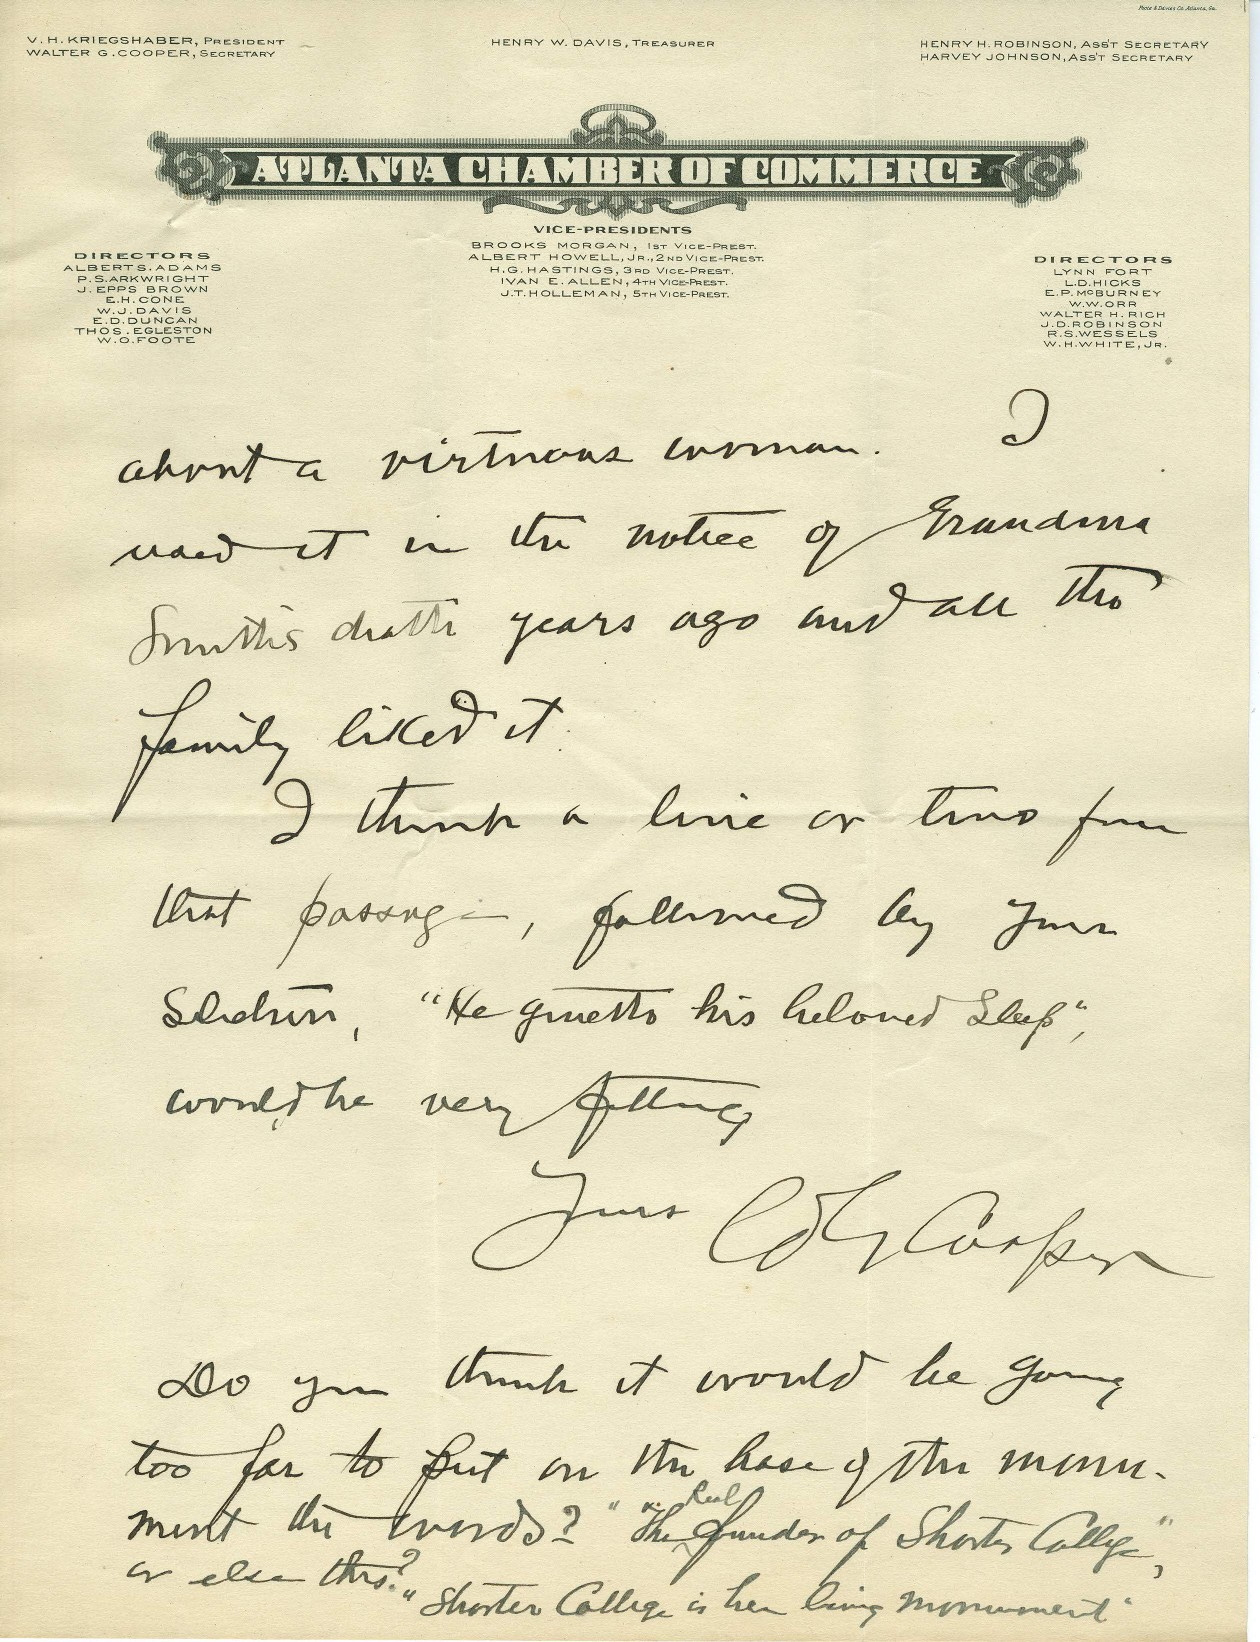 Foote & Davies Co. Atlanta, Ga.
V. H. KRIEGSHABER, PRESIDENT
WALTER G. COOPER, SECRETARY
HENRY W. DAVIS, TREASURER
HENRY H. ROBINSON, ASS'T SECRETARY
HARVEY JOHNSON, ASS'T SECRETARY
ATLANTA CHAMBER OF COMMERCE
VICE-PRESIDENTS
BROOKS MORGAN, 1ST VICE-PREST.
ALBERT HOWELL, JR., 2ND VICE-PREST.
H. G. HASTINGS, 3RD VICE-PREST.
IVAN E. ALLEN, 4TH VICE-PREST.
J. T. HOLLEMAN, 5TH VICE-PREST.
DIRECTORS
ALBERT S. ADAMS
P. S. ARKWRIGHT
J. EPPS BROWN
E. H. CONE
W. J. DAVIS
E. D. DUNCAN
THOS. EGLESTON
W. O. FOOTE
DIRECTORS
LYNN FORT
L. D. HICKS
E. P. McBURNEY
W. W. ORR
WALTER H. RICH
J. D. ROBINSON
R. S. WESSELS
W. H. WHITE, JR.
about a virtuous woman. I
used it in the notice of Grandma
Smith's death years ago and all the
family liked it.
I think a line or two from
that passage, followed by your
selection, "He giveth his beloved sleep",
would be very fitting
Yours Cooper
Do you think it would be going
too far to put on the base of the monu-
ment the words? "The Real founder of Shorter College",
or else this? "Shorter College is her living monument"